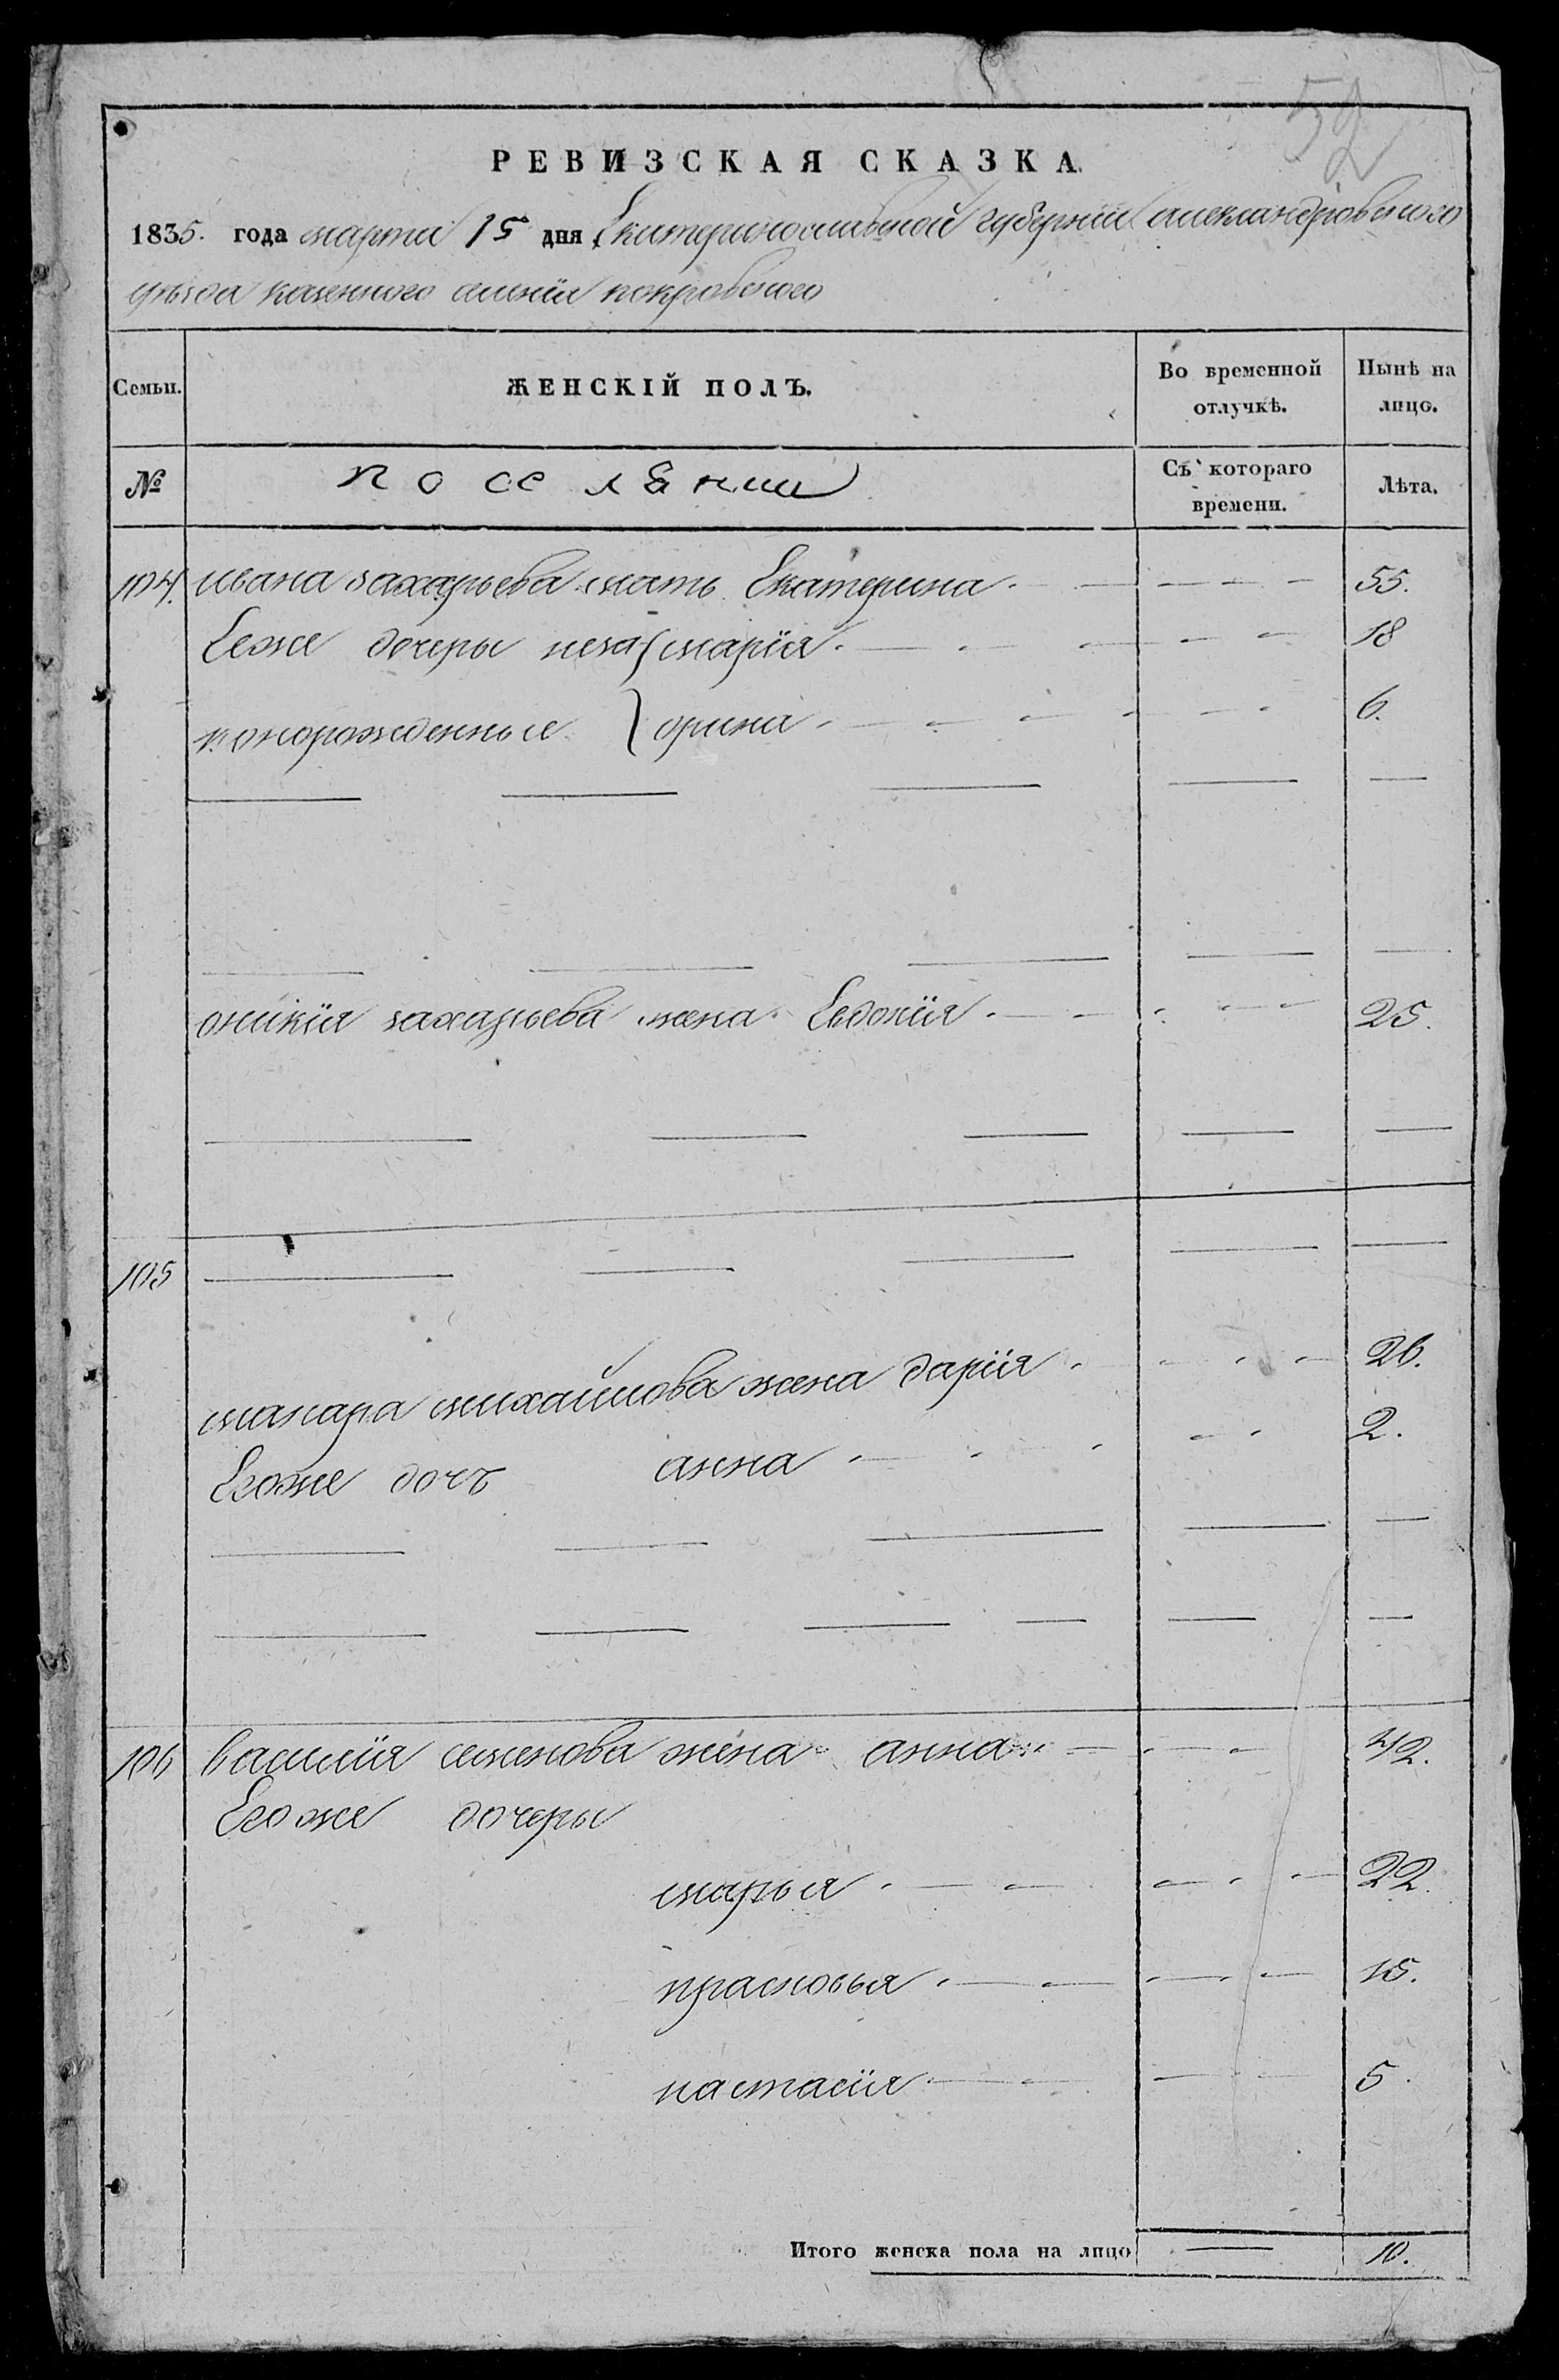 52
РЕВИЗСКАЯ СКАЗКА
1835. года марта 15 дня Екатеринославской губернии александровского
уѣзда казенного селенія покровского
Семьи. ЖЕНСКІЙ ПОЛЪ. Во временной отлучкѣ. Нынѣ на лицо.
№ Съ котораго времени. Лѣта.
104. ивана захарьева мать Екатерина 55.
Еюже дочеры марія 18
рожденные орина 6.
оникія захарьева жена Евдокія 25.
105
макара михайлова жена дарія 26.
Егоже дочъ анна 2.
106 василія семенова жена анна 42.
Егоже дочеры
марья 22.
прасковья 15.
настасія 5.
Итого женска пола на лицо 10.